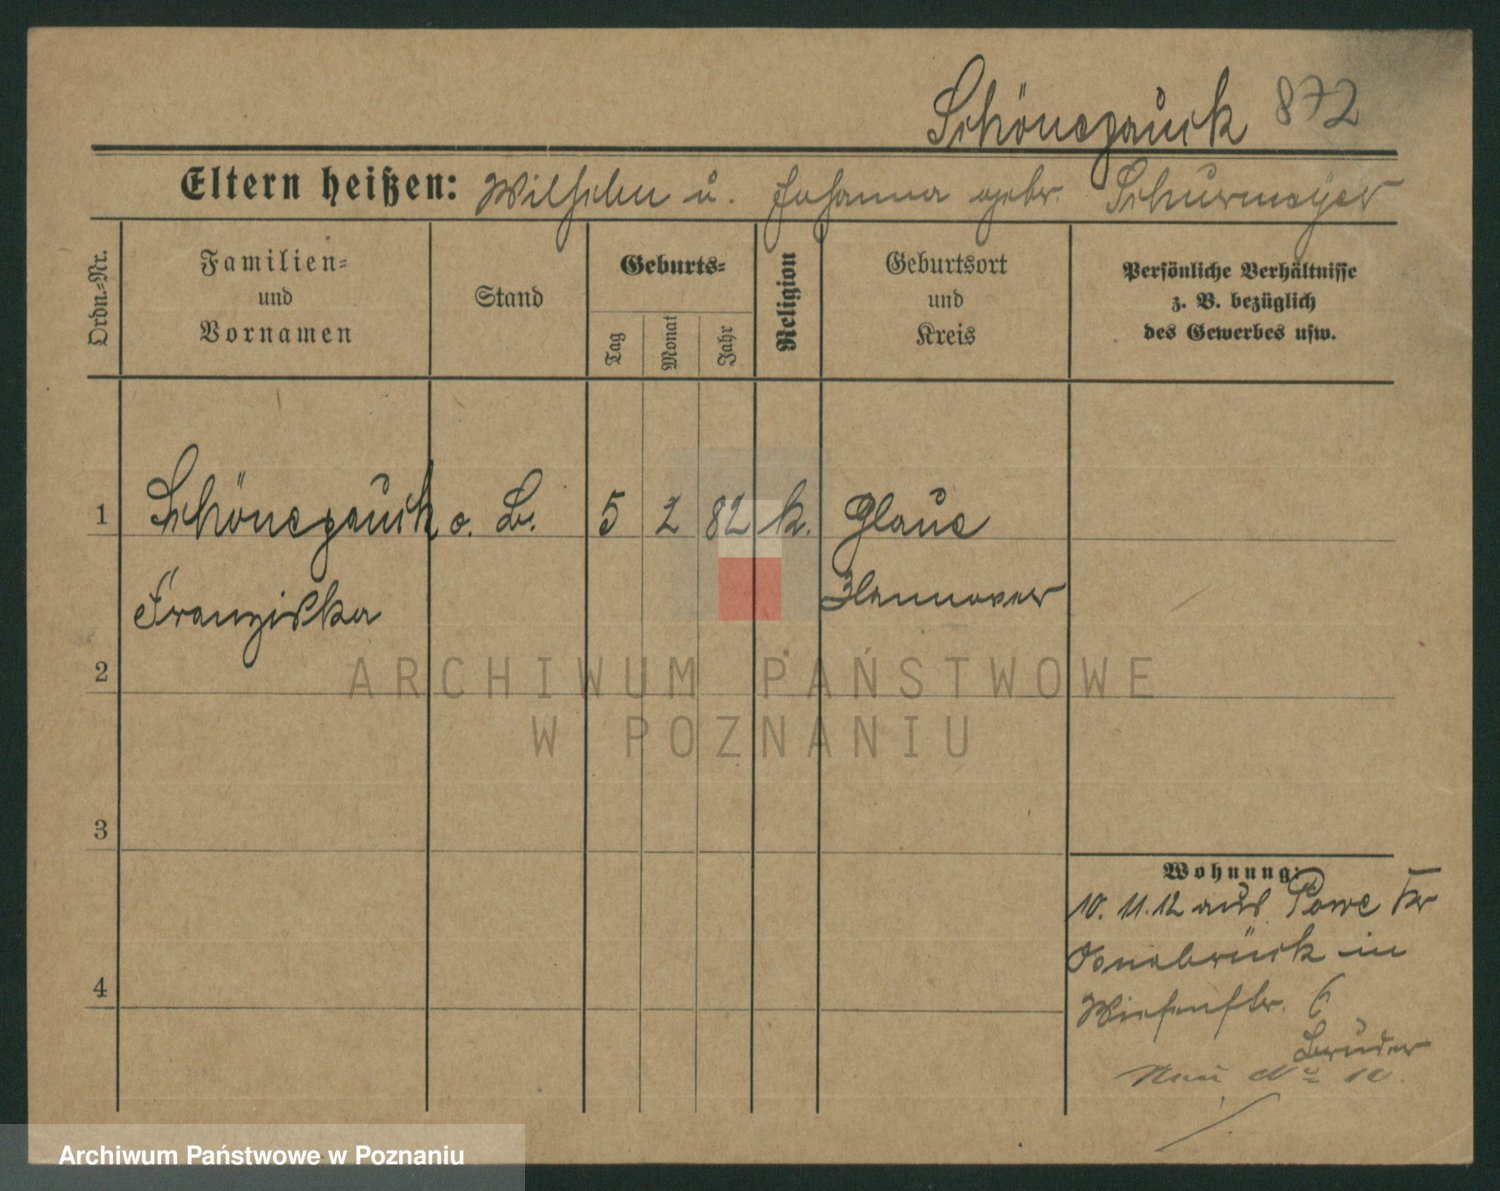 Schönegauck 872
Eltern heißen: Wilhelm u. Johanna gebr. Schurmeyer
Ordn.=Nr.
Familien=
und
Vornamen
Stand
Geburts=
Tag
Monat
Jahr
Religion
Geburtsort
und
Kreis
Persönliche Verhältnisse
z. B. bezüglich
des Gewerbes usw.
1 Schönegauck o. B. 5 2 82 k. Glane
Franziska Hannover
2
ARCHIWUM PAŃSTWOWE
W POZNANIU
3
Wohnung:
10. 11. 12 aus Powe Kr
Osnabrück in
4
Wiesenstr. 6
Bruder
Neu No 10.
Archiwum Państwowe w Poznaniu